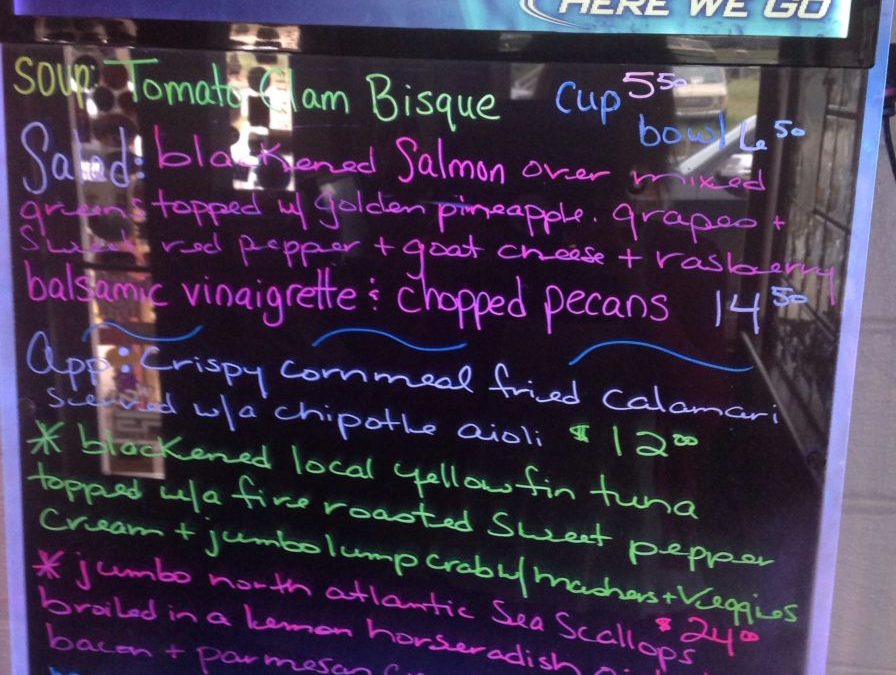 HERE WE GO
Soup: Tomato Clam Bisque cup 5 50
bowl 6 50
Salad: blackened Salmon over mixed
greens topped w/ golden pineapple. grapes +
Sweet red pepper + goat cheese + rasberry
balsamic vinaigrette & chopped pecans 14 50
App: Crispy cornmeal fried calamari
served w/a chipotle aioli $12 00
* blackened local yellowfin tuna
topped w/a fire roasted Sweet pepper
cream + jumbo lump crab w/ mashers + veggies
* jumbo north atlantic Sea Scallops $24 00
broiled in a lemon horseradish
bacon + parmesan